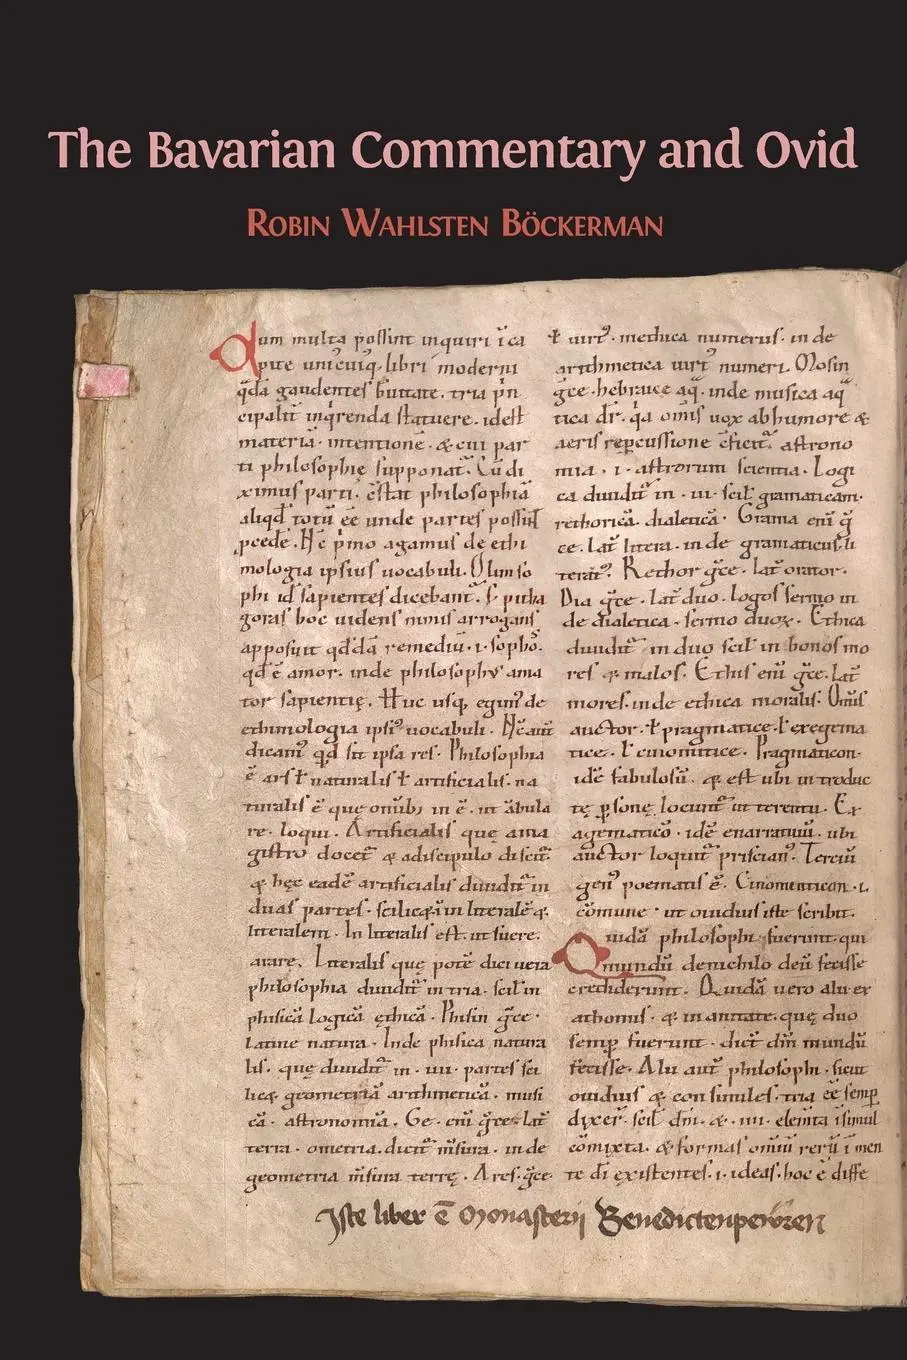 The Bavarian Commentary and Ovid
ROBIN WAHLSTEN BÖCKERMAN
Cum multa possint inquiri ī ca
pite uniꝰcuiꝙ libri moderni
q̄dā gaudentes breuitate. tria p̄n
cipalit̄ inq̇renda statuere. idest
materiā. intentionē. & cui par
ti philosophie supponat̄. Cū di
ximus parti. c̄stat philosophiā
aliqd̄ totū ēē unde partes possint
ꝓcedē. Nc̄ ṗmo agamus de ethi
mologia ipsius uocabuli. Olim so
phi id sapientes dicebant̄. S; pitha
goras hoc uidens nimis arrogans
apposuit qd̄dā remediū .i. sophos.
qd̄ ē amor. inde philosophꝰ ama
tor sapientię. Huc usq; egimꝰ de
ethimologia ipsiꝰ uocabuli. Nc̄ aūt
dicamꝰ qd̄ sit ipsa res. Philosophia
ē ars ł naturalis ł artificialis. na
turalis ē que onīb; in ē. ut ābula
re. loqui. Artificialis que a ma
gistro docet̄ & a discipulo discit̄.
& hęc eadē artificialis diuidit̄ in
duas partes. scilic&
litteralem. In litteralis est. ut suere.
arare. Literalis que potē dici uera
philosophia diuidit̄ in tria. scil̄ in
phisicā logicā ęthicā. Phisin g̅ce.
latine natura. Inde phisica natura
lis. que diuidit̄ in .iiii. partes sci
lic& geometriā arithmeticā. musi
cā. astronomiā. Ge. eni g̅ce. lat̄
terra. ometria. dicit̄ m̄sura. inde
geometria m̄sura terrę. Ares. g̅ce.
ł uirtꝰ. methica numerus. inde
arithmetica uirtꝰ numeri. Mosin
g̅ce. hebraice aq̄. inde musica aq̄
tica dr̄. q̇a om̄is uox ab humore &
aeris repercussione efficit̄. astrono
mia .i. astrorum scientia. Logi
ca diuidit̄ in .iii. scil̄ gramaticam.
rethoricā. dialeticā. Grama eni g̅
ce. lat̄ littera. inde gramaticus. li
teratꝰ. Rethor g̅ce. lat̄ orator.
Dia g̅ce. lat̄ duo. logos sermo in
de dialetica. sermo duoꝝ. Ethica
diuidit̄ in duo scil̄ in bonos mo
res & malos. Ethis eni g̅ce. lat̄
mores. inde ethica moralis. Omīs
auctor. ł pragmatice. ł exegema
tice. ł cinomitice. Pragmaticon.
idē fabulosū. & est ubi introduc
tę ꝑsonę locunt̄ ut terentii. Ex
agematicō. idē enarratiuū. ubi
auctor loquit̄ priscianꝰ. Terciū
genꝰ poematis ē. Cinomiticon .i.
cōmune. ut ouidius iste scribit.
Quidā philosophi fuerunt. qui
mundū de nichilo deū fecisse
crediderunt. Quidā uero alii ex
athomis. & inanitate. que duo
semp̄ fuerunt. dict̄ dm̄ mundū
fecisse. Alii aut̄ philosophi. sicut
ouidius & consimiles. tria ēē semp̄
dixer̄. scil̄ dm̄. & .iiii. elem̄ta ī simul
cōmixta. & formas omīū rerū ī men
te di existentes .i. ideas. hoc ē diffe
Iste liber ē Monasterii Benedictenpewren